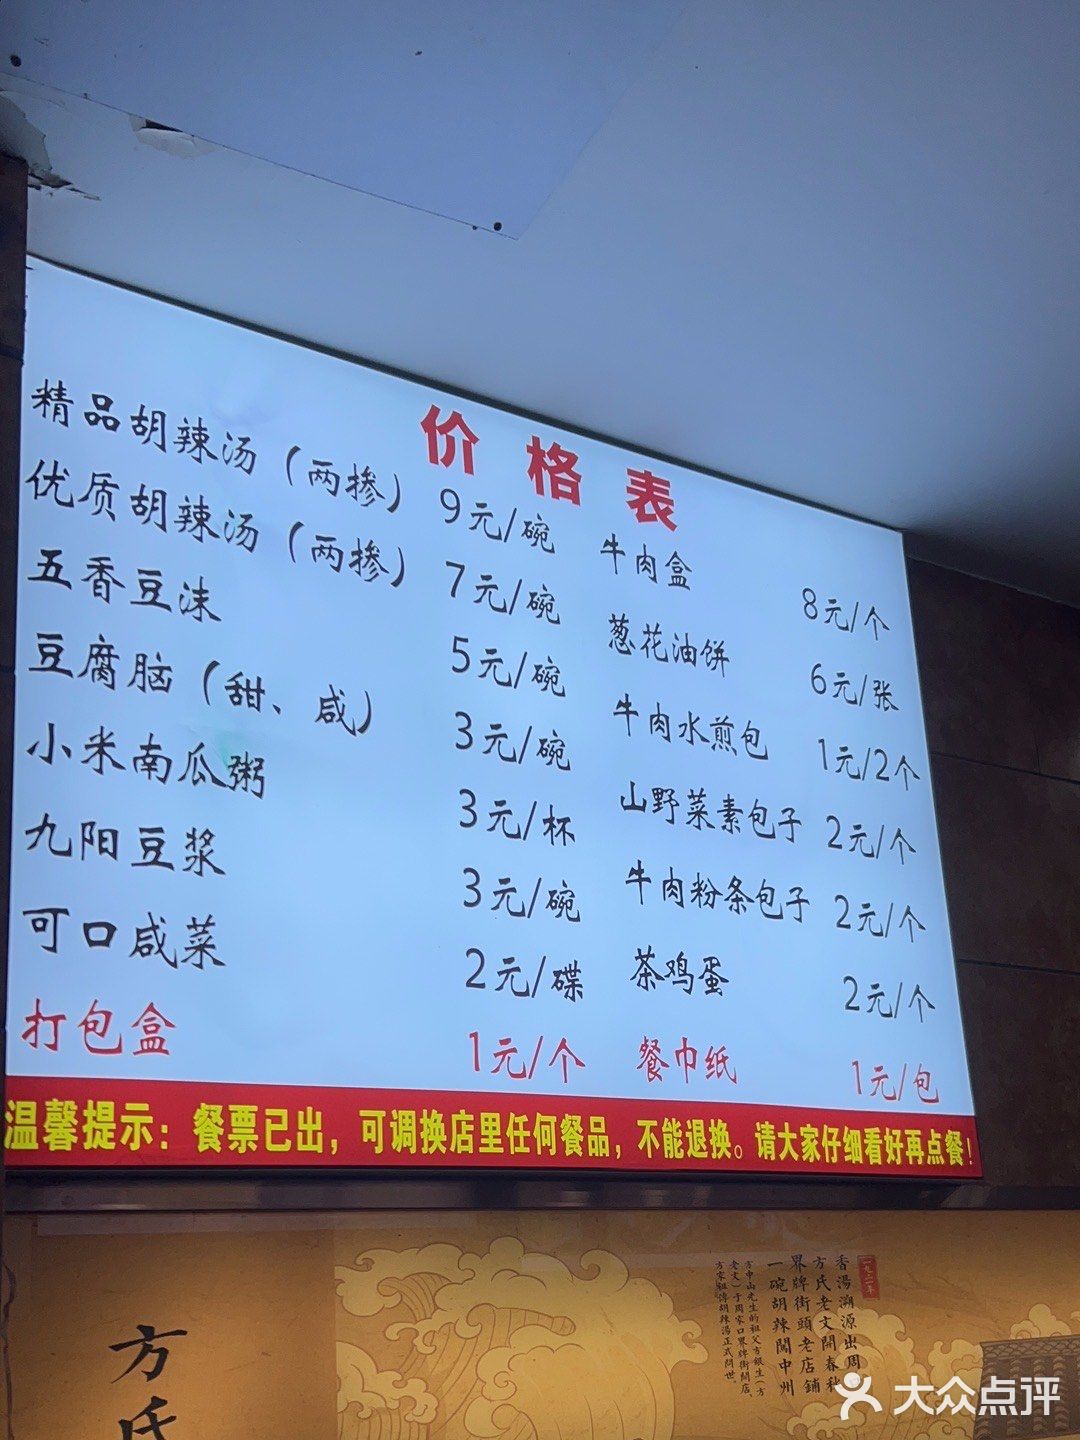 价格表
精品胡辣汤（两掺） 9元/碗
优质胡辣汤（两掺） 7元/碗
五香豆沫 5元/碗
豆腐脑（甜、咸） 3元/碗
小米南瓜粥 3元/杯
九阳豆浆 3元/碗
可口咸菜 2元/碟
打包盒 1元/个
牛肉盒 8元/个
葱花油饼 6元/张
牛肉水煎包 1元/2个
山野菜素包子 2元/个
牛肉粉条包子 2元/个
茶鸡蛋 2元/个
餐巾纸 1元/包
温馨提示：餐票已出，可调换店里任何餐品，不能退换。请大家仔细看好再点餐！
方氏
一九二一年
香湯溯源出周
方氏老文開春秋
界牌街頭老店鋪
一碗胡辣闖中州
方中山先生的祖父方銀生（方
老文）于周家口界牌街開店，
方家祖傳胡辣湯正式問世。
大众点评